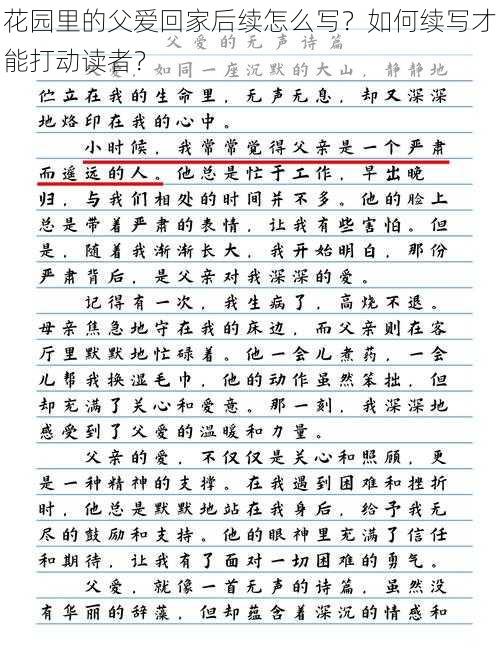 花园里的父爱回家后续怎么写？如何续写才
能打动读者？
父爱的无声诗篇
父爱，如同一座沉默的大山，静静地
伫立在我的生命里，无声无息，却又深深
地烙印在我的心中。
小时候，我常常觉得父亲是一个严肃
而遥远的人。他总是忙于工作，早出晚
归，与我们相处的时间并不多。他的脸上
总是带着严肃的表情，让我有些害怕。但
是，随着我渐渐长大，我开始明白，那份
严肃背后，是父亲对我深深的爱。
记得有一次，我生病了，高烧不退。
母亲焦急地守在我的床边，而父亲则在客
厅里默默地忙碌着。他一会儿煮药，一会
儿帮我换湿毛巾，他的动作虽然笨拙，但
却充满了关心和爱意。那一刻，我深深地
感受到了父爱的温暖和力量。
父亲的爱，不仅仅是关心和照顾，更
是一种精神的支撑。在我遇到困难和挫折
时，他总是默默地站在我身后，给予我无
尽的鼓励和支持。他的眼神里充满了信任
和期待，让我有了面对一切困难的勇气。
父爱，就像一首无声的诗篇，虽然没
有华丽的辞藻，但却蕴含着深沉的情感和